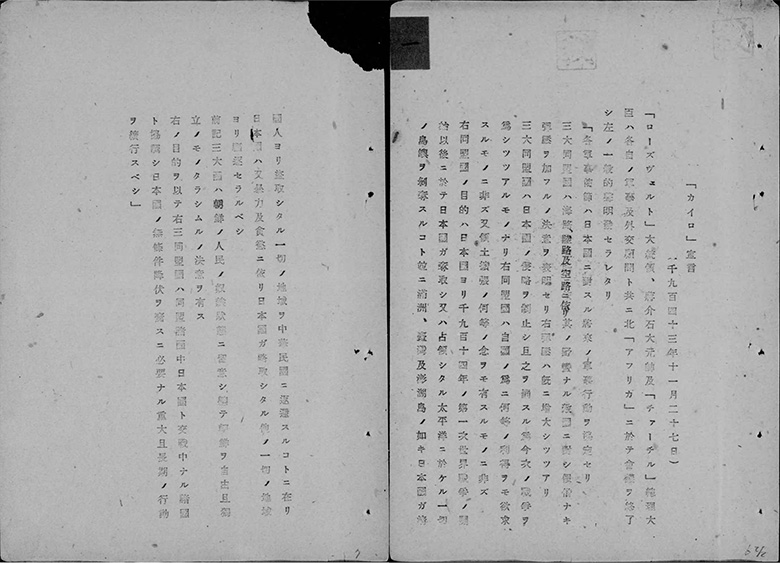 「カイロ」宣言
(千九百四十三年十一月二十七日)
「ローズヴェルト」大統領、蔣介石大元帥及「チャーチル」總理大
臣ハ各自ノ軍事及外交顧問ト共ニ北「アフリカ」ニ於テ會議ヲ終了
シ左ノ一般的聲明發セラレタリ
「各軍事使節ハ日本國ニ對スル將來ノ軍事行動ヲ協定セリ
三大同盟國ハ海路、陸路及空路ニ依リ其ノ野蠻ナル敵國ニ對シ假借ナキ
彈壓ヲ加フルノ決意ヲ表明セリ右彈壓ハ旣ニ增大シツツアリ
三大同盟國ハ日本國ノ侵略ヲ制止シ且之ヲ罰スル爲今次ノ戰爭ヲ
爲シツツアルモノナリ右同盟國ハ自國ノ爲ニ何等ノ利得ヲモ欲求
スルモノニ非ズ又領土擴張ノ何等ノ念ヲモ有スルモノニ非ズ
右同盟國ノ目的ハ日本國ヨリ千九百十四年ノ第一次世界戰爭ノ開
始以後ニ於テ日本國ガ奪取シ又ハ占領シタル太平洋ニ於ケル一切
ノ島嶼ヲ剝奪スルコト竝ニ滿洲、臺灣及澎湖島ノ如キ日本國ガ淸
國人ヨリ盜取シタル一切ノ地域ヲ中華民國ニ返還スルコトニ在リ
日本國ハ又暴力及貪慾ニ依リ日本國ガ略取シタル他ノ一切ノ地域
ヨリ驅逐セラルベシ
前記三大國ハ朝鮮ノ人民ノ奴隸狀態ニ留意シ軈テ朝鮮ヲ自由且獨
立ノモノタラシムルノ決意ヲ有ス
右ノ目的ヲ以テ右三同盟國ハ同盟諸國中日本國ト交戰中ナル諸國
ト協調シ日本國ノ無條件降伏ヲ齎スニ必要ナル重大且長期ノ行動
ヲ續行スベシ」
一